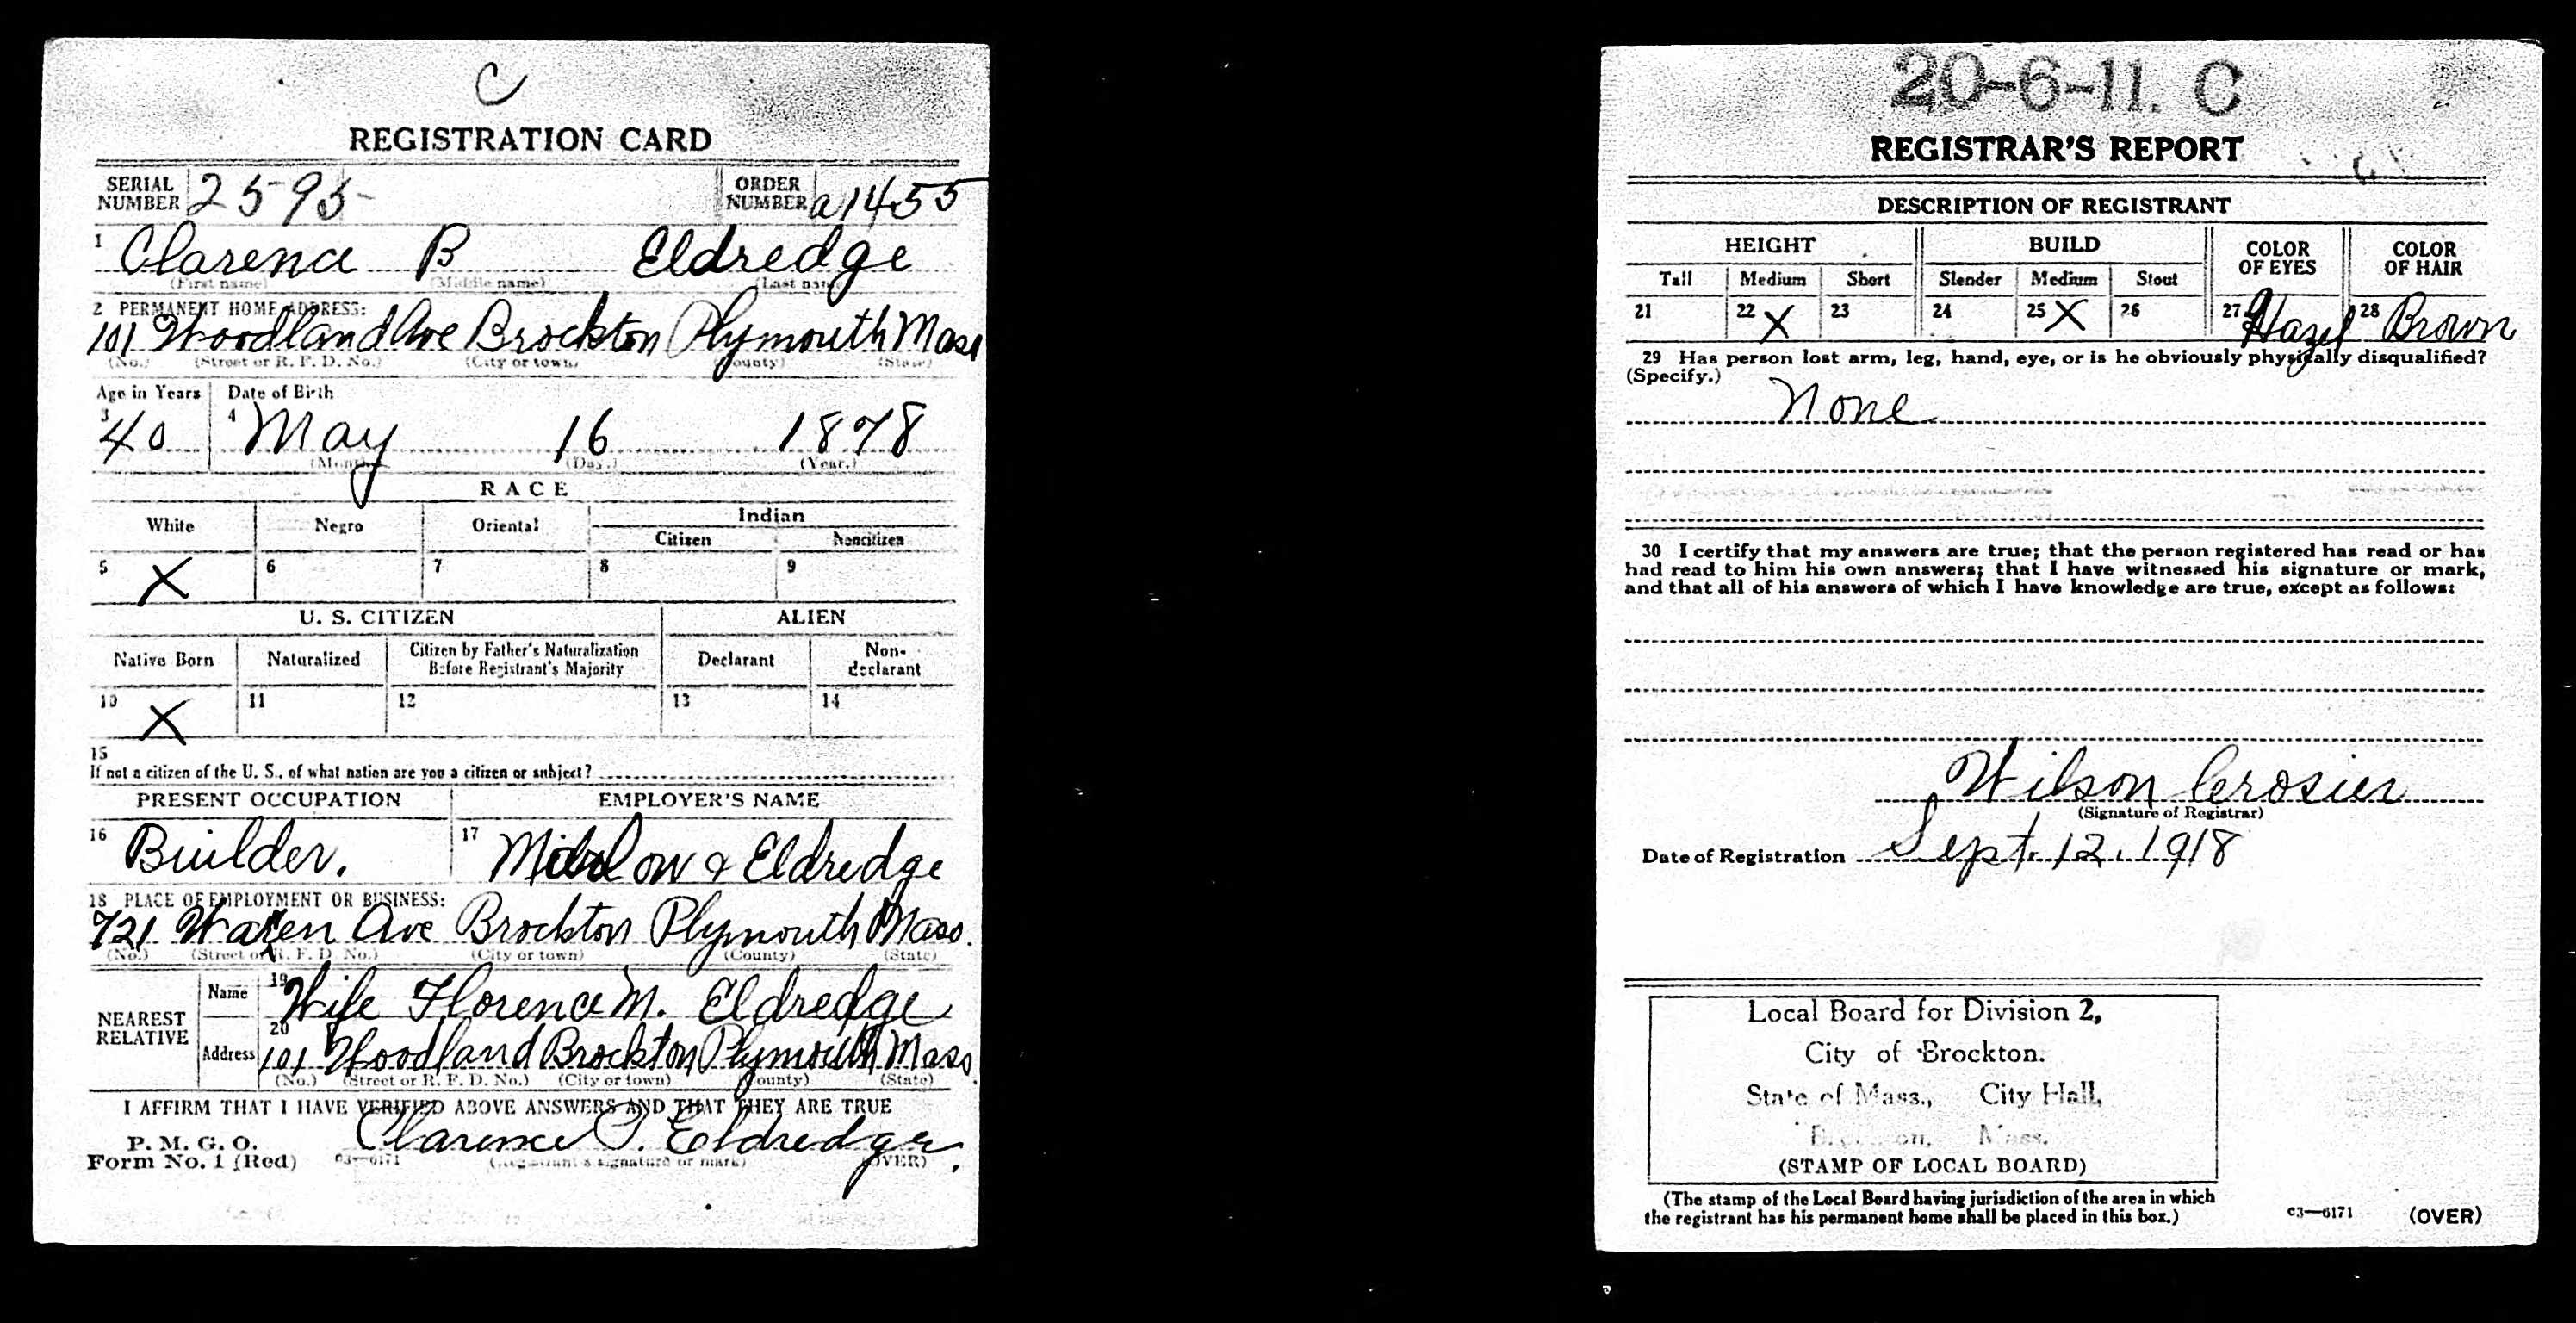 C
REGISTRATION CARD
SERIAL NUMBER 2595 ORDER NUMBER a1455
1 Clarence B Eldredge
(First name) (Middle name) (Last name)
2 PERMANENT HOME ADDRESS:
101 Woodland Ave Brockton Plymouth Mass
(No.) (Street or R. F. D. No.) (City or town) (County) (State)
Age in Years Date of Birth
3 40 4 May 16 1878
(Month.) (Day.) (Year.)
RACE
White Negro Oriental Indian
Citizen Noncitizen
5 X 6 7 8 9
U. S. CITIZEN ALIEN
Native Born Naturalized Citizen by Father's Naturalization Before Registrant's Majority Declarant Non-declarant
10 X 11 12 13 14
15
If not a citizen of the U. S., of what nation are you a citizen or subject?
PRESENT OCCUPATION EMPLOYER'S NAME
16 Builder. 17 & Eldredge
18 PLACE OF EMPLOYMENT OR BUSINESS:
721 Warren Ave Brockton Plymouth Mass.
(No.) (Street or R. F. D. No.) (City or town) (County) (State)
NEAREST RELATIVE Name 19 Wife Florence M. Eldredge
Address 20 101 Woodland Brockton Plymouth Mass.
(No.) (Street or R. F. D. No.) (City or town) (County) (State)
I AFFIRM THAT I HAVE VERIFIED ABOVE ANSWERS AND THAT THEY ARE TRUE
P. M. G. O.
Form No. 1 (Red) 03—6171 Clarence Eldredge
(Registrant's signature or mark) (OVER)
20-6-11. C
REGISTRAR'S REPORT
DESCRIPTION OF REGISTRANT
HEIGHT BUILD COLOR OF EYES COLOR OF HAIR
Tall Medium Short Slender Medium Stout
21 22 X 23 24 25 X 26 27 Hazel 28 Brown
29 Has person lost arm, leg, hand, eye, or is he obviously physically disqualified?
(Specify.)
None
30 I certify that my answers are true; that the person registered has read or has
had read to him his own answers; that I have witnessed his signature or mark,
and that all of his answers of which I have knowledge are true, except as follows:
Wilson Crosier
(Signature of Registrar)
Date of Registration Sept. 12, 1918
Local Board for Division 2,
City of Brockton.
State of Mass., City Hall,
Mass.
(STAMP OF LOCAL BOARD)
(The stamp of the Local Board having jurisdiction of the area in which
the registrant has his permanent home shall be placed in this box.)
03—6171 (OVER)